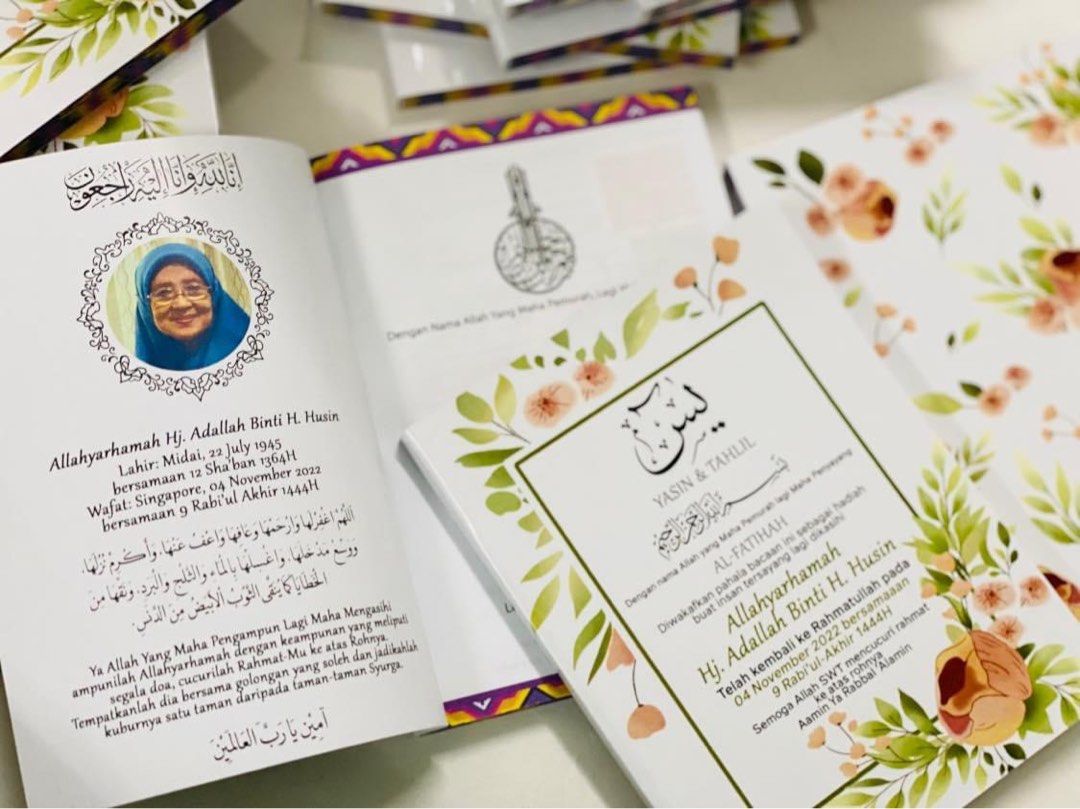 إنا لله وإنا إليه راجعون
Allahyarhamah Hj. Adallah Binti H. Husin
Lahir: Midai, 22 July 1945
bersamaan 12 Sha'ban 1364H
Wafat: Singapore, 04 November 2022
bersamaan 9 Rabi'ul Akhir 1444H
اَللّٰهُمَّ اغْفِرْلَهَا وَارْحَمْهَا وَعَافِهَا وَاعْفُ عَنْهَا، وَأَكْرِمْ نُزُلَهَا،
وَوَسِّعْ مَدْخَلَهَا، وَاغْسِلْهَا بِالْمَاءِ وَالثَّلْجِ وَالْبَرَدِ، وَنَقِّهَا مِنَ
الْخَطَايَا كَمَا يُنَقَّى الثَّوْبُ الْأَبْيَضُ مِنَ الدَّنَسِ.
Ya Allah Yang Maha Pengampun Lagi Maha Mengasihi
ampunilah Allahyarhamah dengan keampunan yang meliputi
segala doa, cucurilah Rahmat-Mu ke atas Rohnya.
Tempatkanlah dia bersama golongan yang soleh dan jadikanlah
kuburnya satu taman daripada taman-taman Syurga.
آمِيْن يَا رَبَّ الْعَالَمِيْنَ
Dengan Nama Allah Yang Maha Pemurah, Lagi
يس
YASIN & TAHLIL
بسم الله الرحمن الرحيم
Dengan nama Allah yang Maha Pemurah lagi Maha Penyayang
AL-FATIHAH
Diwakafkan pahala bacaan ini sebagai hadiah
buat insan tersayang lagi dikasihi
Allahyarhamah
Hj. Adallah Binti H. Husin
Telah kembali ke Rahmatullah pada
04 November 2022 bersamaaan
9 Rabi'ul-Akhir 1444H
Semoga Allah SWT mencucuri rahmat
ke atas rohnya
Aamin Ya Rabbal 'Alamin